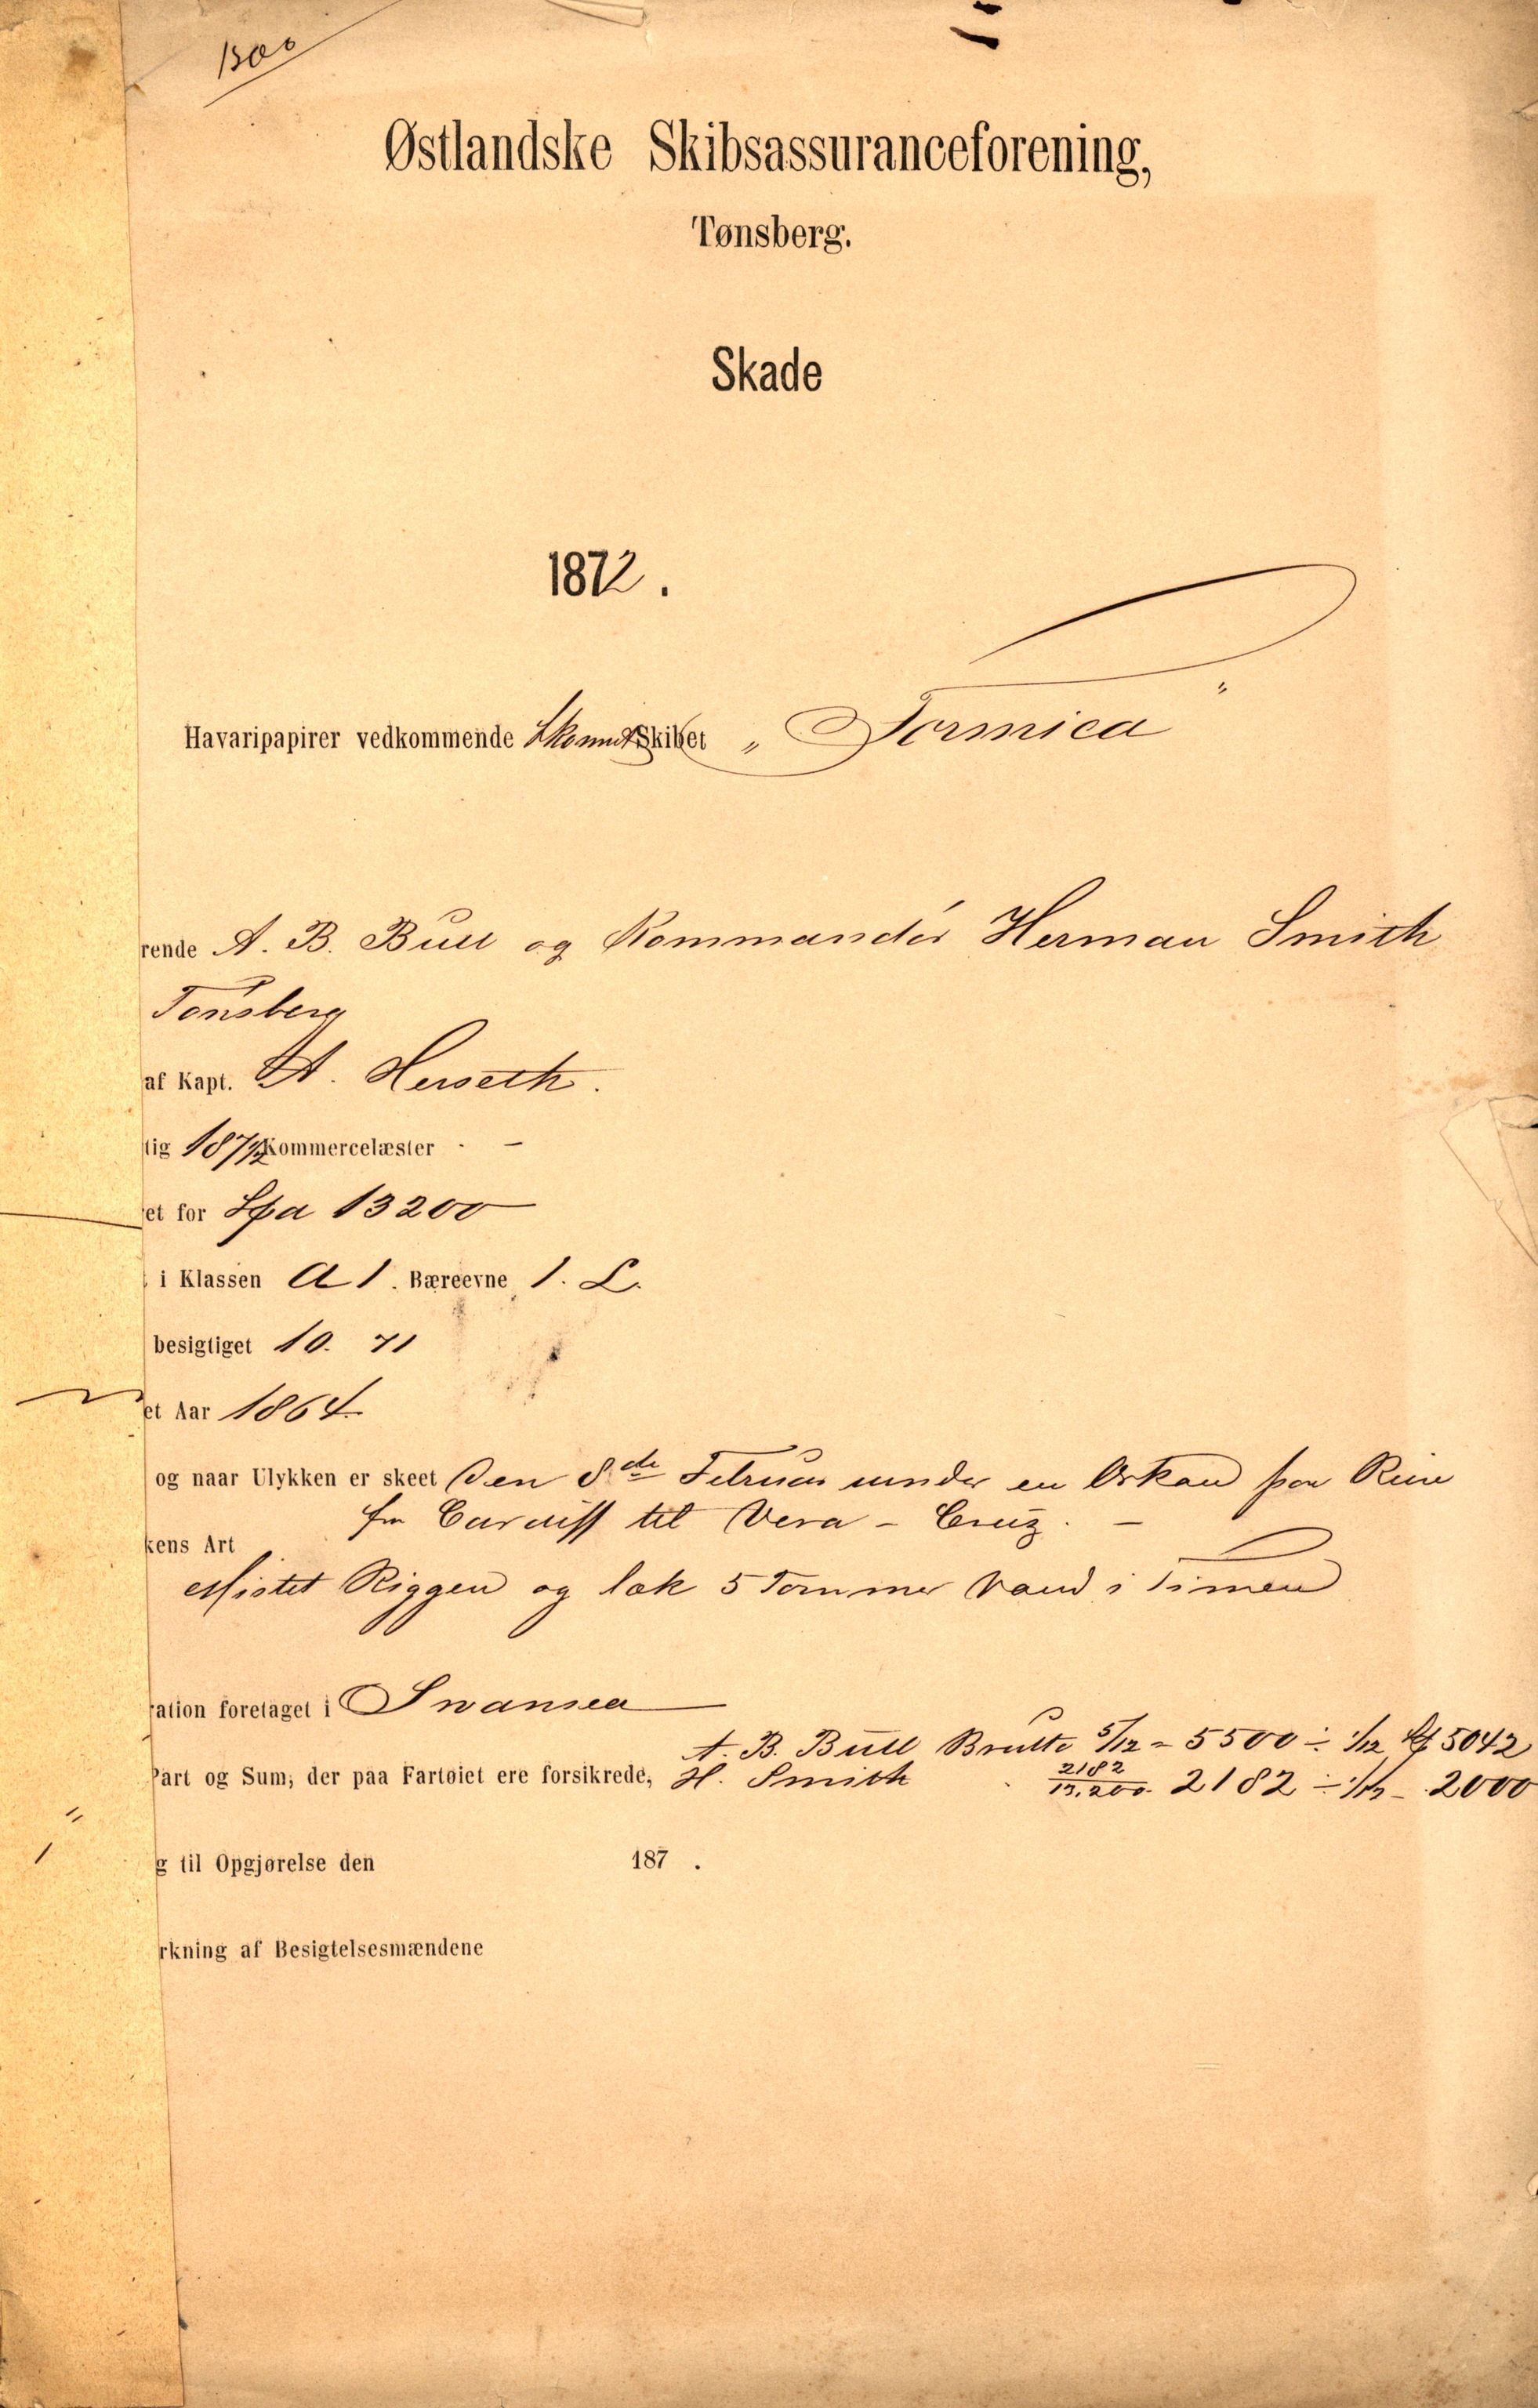 1500
Østlandske Skibsassuranceforening,
Tønsberg.
Skade
1872.
Havaripapirer vedkommende Skonnertskibet „Formica"
rende A. B. Bull og Kommandör Herman Smith
Tönsberg
af Kapt. A. Herseth.
tig 187 1/2 Kommercelæster - -
et for Spd 13200
i Klassen A 1. Bæreevne 1. L.
besigtiget 10. 71
et Aar 1864
og naar Ulykken er skeet Den 8de Februar under en Orkan paa Reise
fra Cardiff til Vera-Cruz. -
kens Art
Mistet Riggen og læk 5 Tommer Vand i Timen
ration foretaget i Swansea
A. B. Bull Brutto 5/12 = 5500 ÷ 1/12 5042
Part og Sum, der paa Fartøiet ere forsikrede, H. Smith 2182/13,200 2182 ÷ 1/12 - 2000
g til Opgjørelse den 187 .
rkning af Besigtelsesmændene